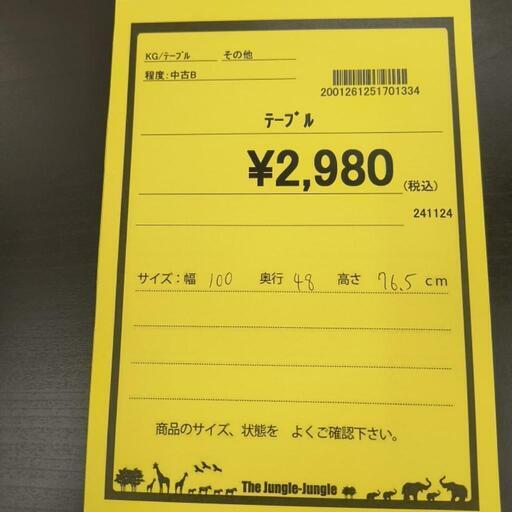 KG/ﾃｰﾌﾞﾙ その他
程度:中古B
2001261251701334
ﾃｰﾌﾞﾙ
¥2,980(税込)
241124
サイズ:幅 100 奥行 48 高さ 76.5 cm
商品のサイズ、状態を よくご確認下さい。
The Jungle-Jungle